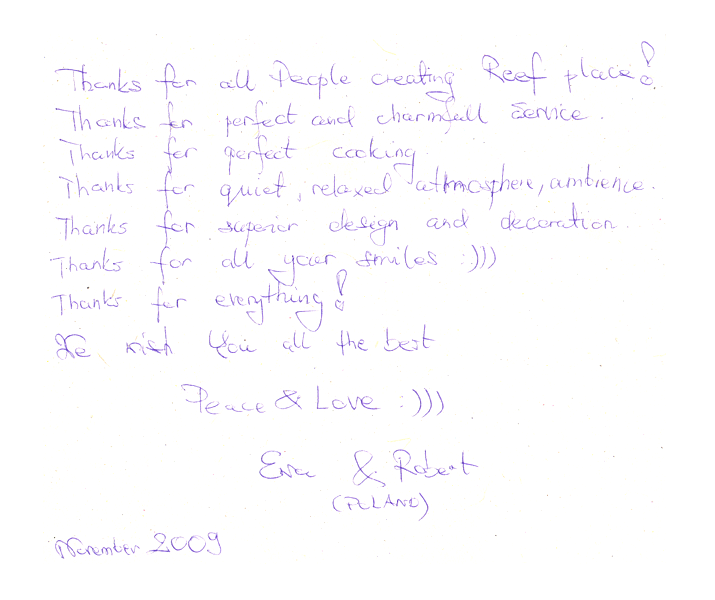 Thanks for all People creating Reef place!
Thanks for perfect and charmfull service.
Thanks for perfect cooking
Thanks for quiet, relaxed attmosphere, ambience.
Thanks for superior design and decoration.
Thanks for all your smiles :)))
Thanks for everything!
We wish You all the best
Peace & Love :)))
Eva & Robert
(POLAND)
November 2009